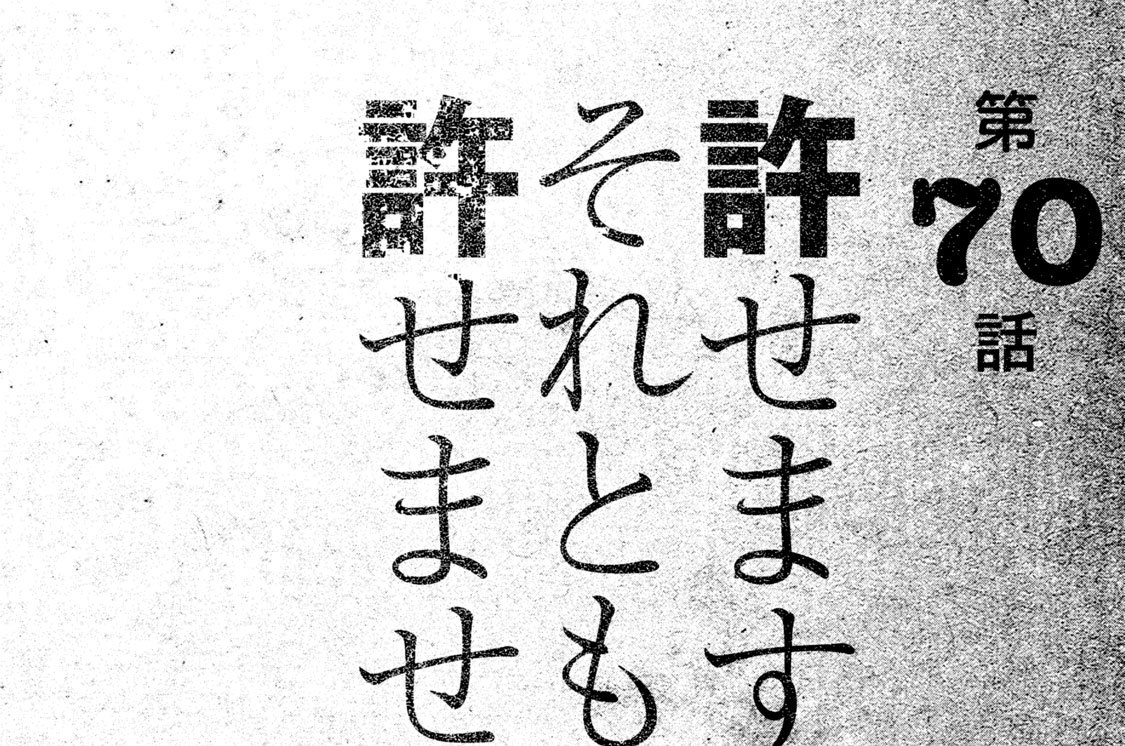 第70話
許せます
それとも
許せませ